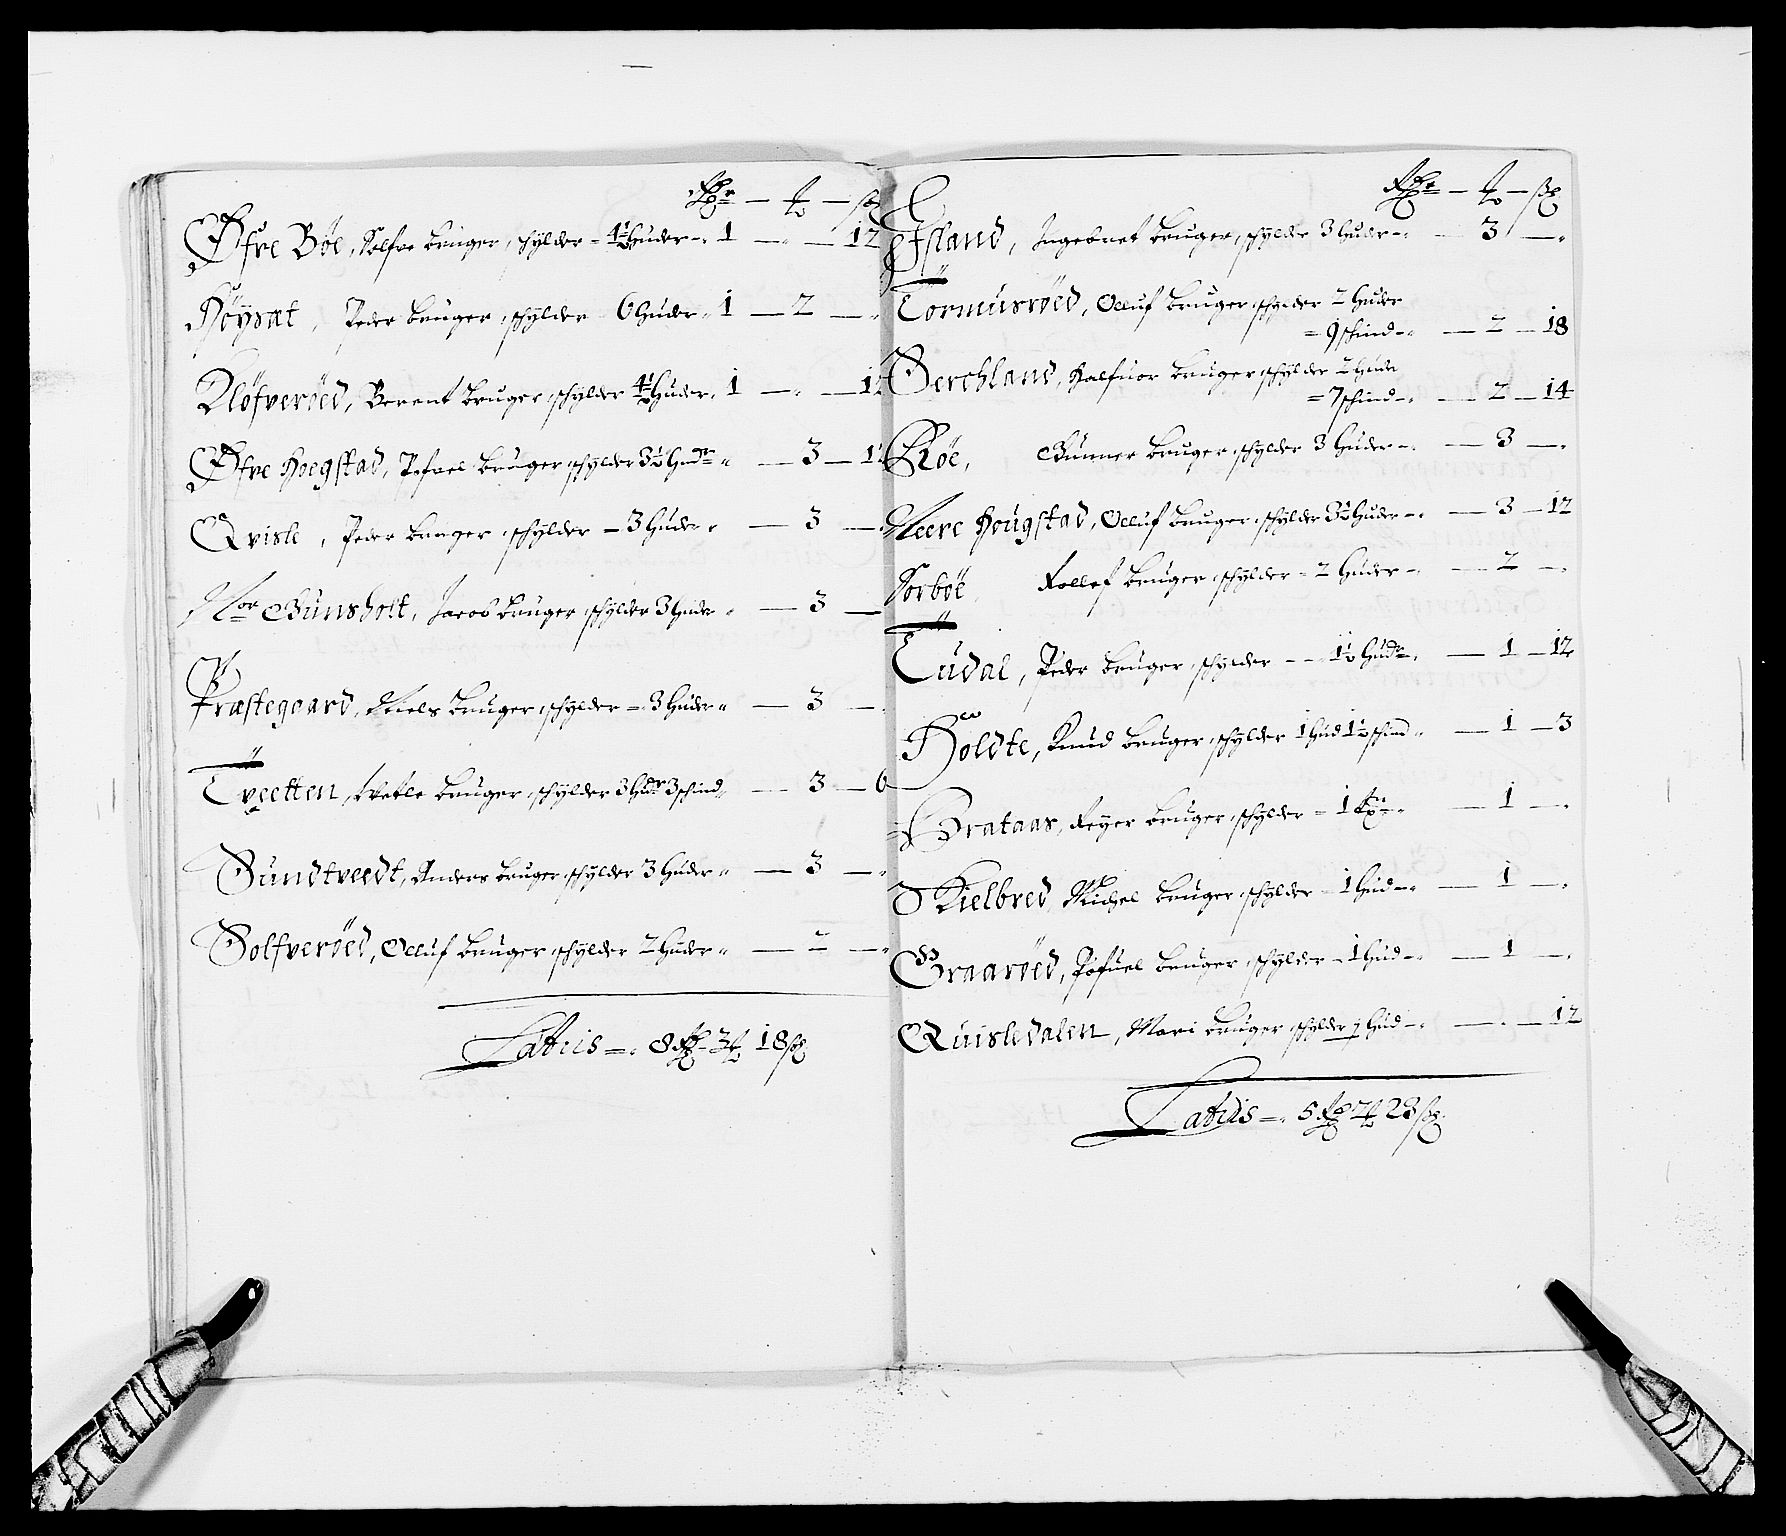 Rdr — ƶ — sk
Øfre Bøe, Solfve bruger, schylder = 4½ Huder — 1 — „ — 12
Høysæt, Peder bruger, schylder 6 Huder „ 1 — 2 — „
Kløfverøed, Berent bruger, schylder 4½ Huder „ 1 — „ — 12
Øfre Hoegstad, Pofvel bruger schylder 3½ Hudr „ — 3 — 12
Qvisle, Peder bruger, schylder — 3 Huder „ — 3 — „
Nor Gunsholt, Jacob bruger schylder 3 Huder „ — 3 —
Præstegaard, Niels bruger, schylder = 3 Huder „ — 3 — „
Tveetten, Wetle bruger, schylder 3 Hudr 3 schind „ — 3 — 6
Sundtveedt, Anders bruger, schylder 3 Huder „ — 3 — „
Solfverøed, Olluf bruger, schylder 2 Huder „ — 2 — „
Latus — 8 Rdr 3 ƶ 18 sk
Rdr — ƶ — sk
Efland, Ingebret bruger, schylder 3 Huder — „ — 3 — „
Tormusrøed, Olluf bruger, schylder 2 Huder
= 9 schind — „ — 2 — 18
Serchland, Halfuor bruger, schylder 2 Huder
= 7 schind — „ — 2 — 14
Røe, Gunner bruger, schylder 3 Huder — „ — 3 — „
Neere Hougstad, Olluf bruger, schylder 3½ Huder — „ — 3 — 12
Sorbøe Rollef bruger, schylder = 2 Huder — „ — 2 — „
Tudal, Peder bruger, schylder — 1½ Hudr „ — 1 — 12
Holdte, Knud bruger, schylder 1 Hud 1½ schind „ — 1 — 3
Brataas, Reyer bruger, schylder = 1 „ — 1 — „
Skielbred Michel bruger, schylder — 1 Hud — „ — 1 — „
Graarøed, Pofuel bruger, schylder — 1 Hud — „ — 1 — „
Quisledalen, Mari bruger, schylder ½ Hud — „ — „ — 12
Latus — 5 Rdr 2 ƶ 23 sk